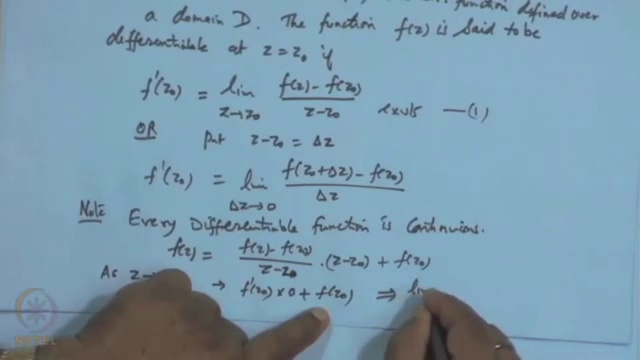 function defined over
a domain D. The function f(z) is said to be
differentiable at z = z₀ if
f'(z₀) = lim z→z₀ (f(z) - f(z₀)) / (z - z₀) exists —(1)
OR put z - z₀ = Δz
f'(z₀) = lim Δz→0 (f(z₀+Δz) - f(z₀)) / Δz
Note Every Differentiable function is Continuous.
f(z) = (f(z) - f(z₀)) / (z - z₀) · (z - z₀) + f(z₀)
As z → f'(z₀) × 0 + f(z₀) ⇒ li
NPTEL